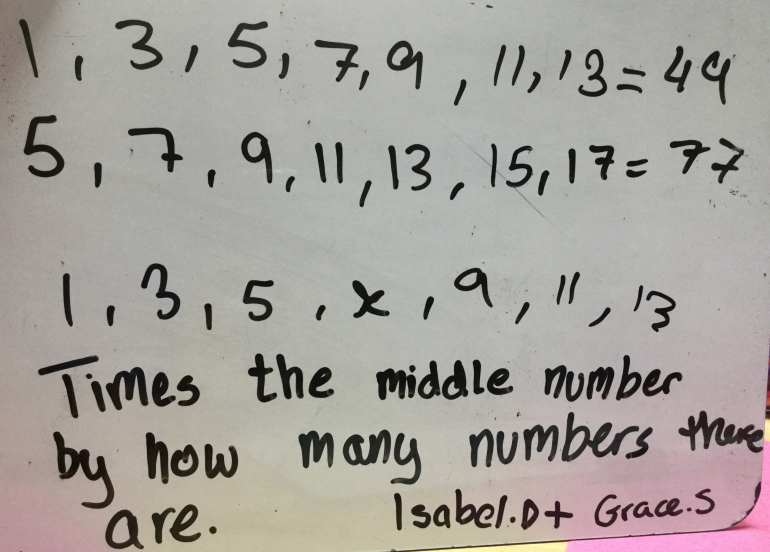 1, 3, 5, 7, 9, 11, 13 = 49
5, 7, 9, 11, 13, 15, 17 = 77
1, 3, 5, x, 9, 11, 13
Times the middle number
by how many numbers there
are.
Isabel.D + Grace.S